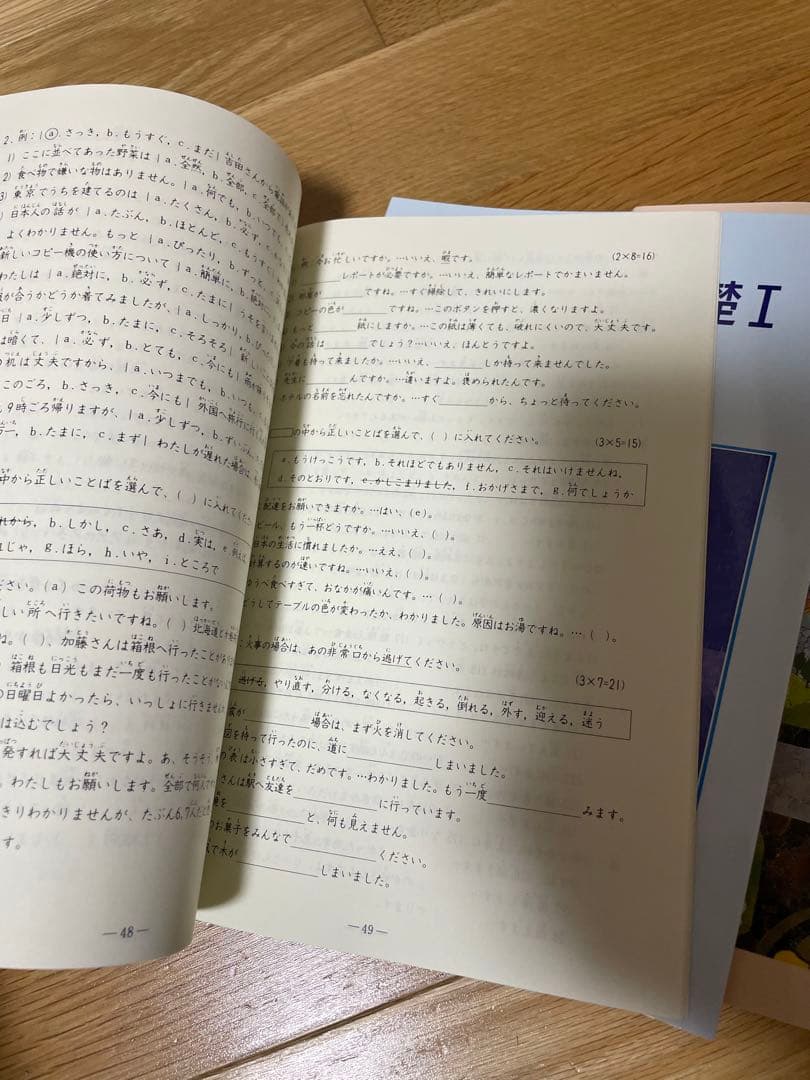 2. 例：｛ⓐ.さっき，b.もうすぐ，c.まだ｝吉田さんから
1) ここに並べてあった野菜は｛a.全然，b.全部，
2) 食べ物で嫌いな物はありません。｛a.何でも，b.いつ
3) 東京でうちを建てるのは｛a.たくさん，b.必ず，
日本人の話が｛a.たぶん，b.ほとんど，c.もうす
よくわかりません。もっと｛a.ぴったり，b.ずっと，
新しいコピー機の使い方について｛a.簡単に，b.絶対
わたしは｛a.絶対に，b.必ず，c.たまに｝うそを
が合うかどうか着てみましたが，｛a.しっかり，b.ぴったり
日｛a.少しずつ，b.たまに，c.そろそろ｝新し
は暗くて，｛a.必ず，b.とても，c.今にも｝雨が
の机は丈夫ですから，｛a.いつまでも，b.いつも，
このごろ，b.さっき，c.今にも｝外国へ旅行に行
9時ごろ帰りますが，｛a.少しずつ，b.
b.たまに，c.まず｝わたしが遅れた場合は，
中から正しいことばを選んで，（ ）に入れてくださ
れから，b.しかし，c.さあ，d.実は，e.
じゃ，g.ほら，h.いや，i.ところで
ださい。（a）この荷物もお願いします。
しい所へ行きたいですね。（ ）北海道
ね。（ ），加藤さんは箱根へ行ったことが
箱根も日光もまだ一度も行ったことが
の日曜日よかったら，いっしょに行きません
は込むでしょう？
発すれば大丈夫ですよ。あ，そうそう，
，わたしもお願いします。全部で何人で
きりわかりませんが，たぶん6,7人だと
す。
—48—
お忙しいですか。…いいえ，暇です。 (2×8=16)
______レポートが必要ですか。…いいえ，簡単なレポートでかまいません。
______ですね。…すぐ掃除して，きれいにします。
コピーの色が______ですね。…このボタンを押すと，濃くなりますよ。
もっと______紙にしますか。…この紙は薄くても，破れにくいので，大丈夫です。
の話は______でしょう？…いいえ，ほんとうですよ。
も持って来ましたか。…いいえ，______しか持って来ませんでした。
先生に______んですか。…違いますよ。褒められたんです。
ホテルの名前を忘れたんですか。…すぐ______から，ちょっと待ってください。
の中から正しいことばを選んで，（ ）に入れてください。 (3×5=15)
a.もうけっこうです，b.それほどでもありません，c.それはいけませんね，
d.そのとおりです，e.かしこまりました，f.おかげさまで，g.何でしょうか
配達をお願いできますか。…はい，（e）。
ビール，もう一杯どうですか。…いいえ，（ ）。
日本の生活に慣れましたか。…ええ，（ ）。
計算するのが速いですね。…いいえ，（ ）。
ゆうべ食べすぎて，おなかが痛いんです。…（ ）。
どうしてテーブルの色が変わったか，わかりました。原因はお湯ですね。…（ ）。
：火事の場合は，あの非常口から逃げてください。 (3×7=21)
逃げる，やり直す，分ける，なくなる，起きる，倒れる，外す，迎える，迷う
______場合は，まず火を消してください。
図を持って行ったのに，道に______しまいました。
の表は小さすぎて，だめです。…わかりました。もう一度______みます。
さんは駅へ友達を______に行っています。
鏡を______と，何も見えません。
のお菓子をみんなで______ください。
で木が______しまいました。
—49—
礎I